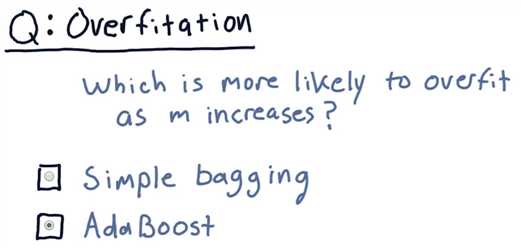 Q: Overfitation
Which is more likely to overfit
as m increases?
Simple bagging
AdaBoost